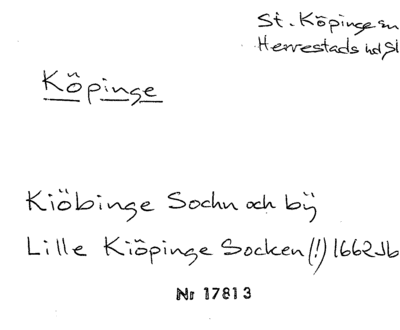 St. Köpinge sn
Herrestads hd Sl
Köpinge
Kiöbinge Sochn och bÿ
Lille Kiöpinge Socken (!) 1662 Jb
Nr 17813